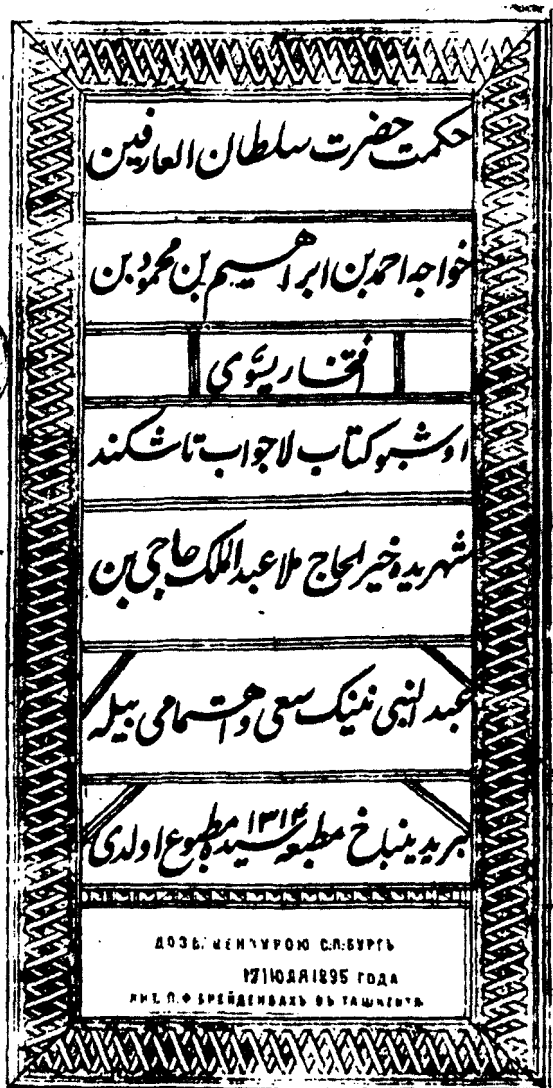 حكمت حضرت سلطان العارفين
خواجه احمد بن ابراهيم بن محمود بن
افتخار يسّوى
اوشبو كتاب لاجواب تاشكند
شهريده خير الحاج ملا عبدالملك حاجى بن
عبدالنبى نينك سعى و اهتمامى بيله
بريدينباخ مطبعه سيده مطبوع اولدى ١٣١٣
ДОЗВ. ЦЕНЗУРОЮ С.П.БУРГЪ
17 ІЮЛЯ 1895 ГОДА
ЛИТ. П.Ф БРЕЙДЕНБАХЪ ВЪ ТАШКЕНТѢ